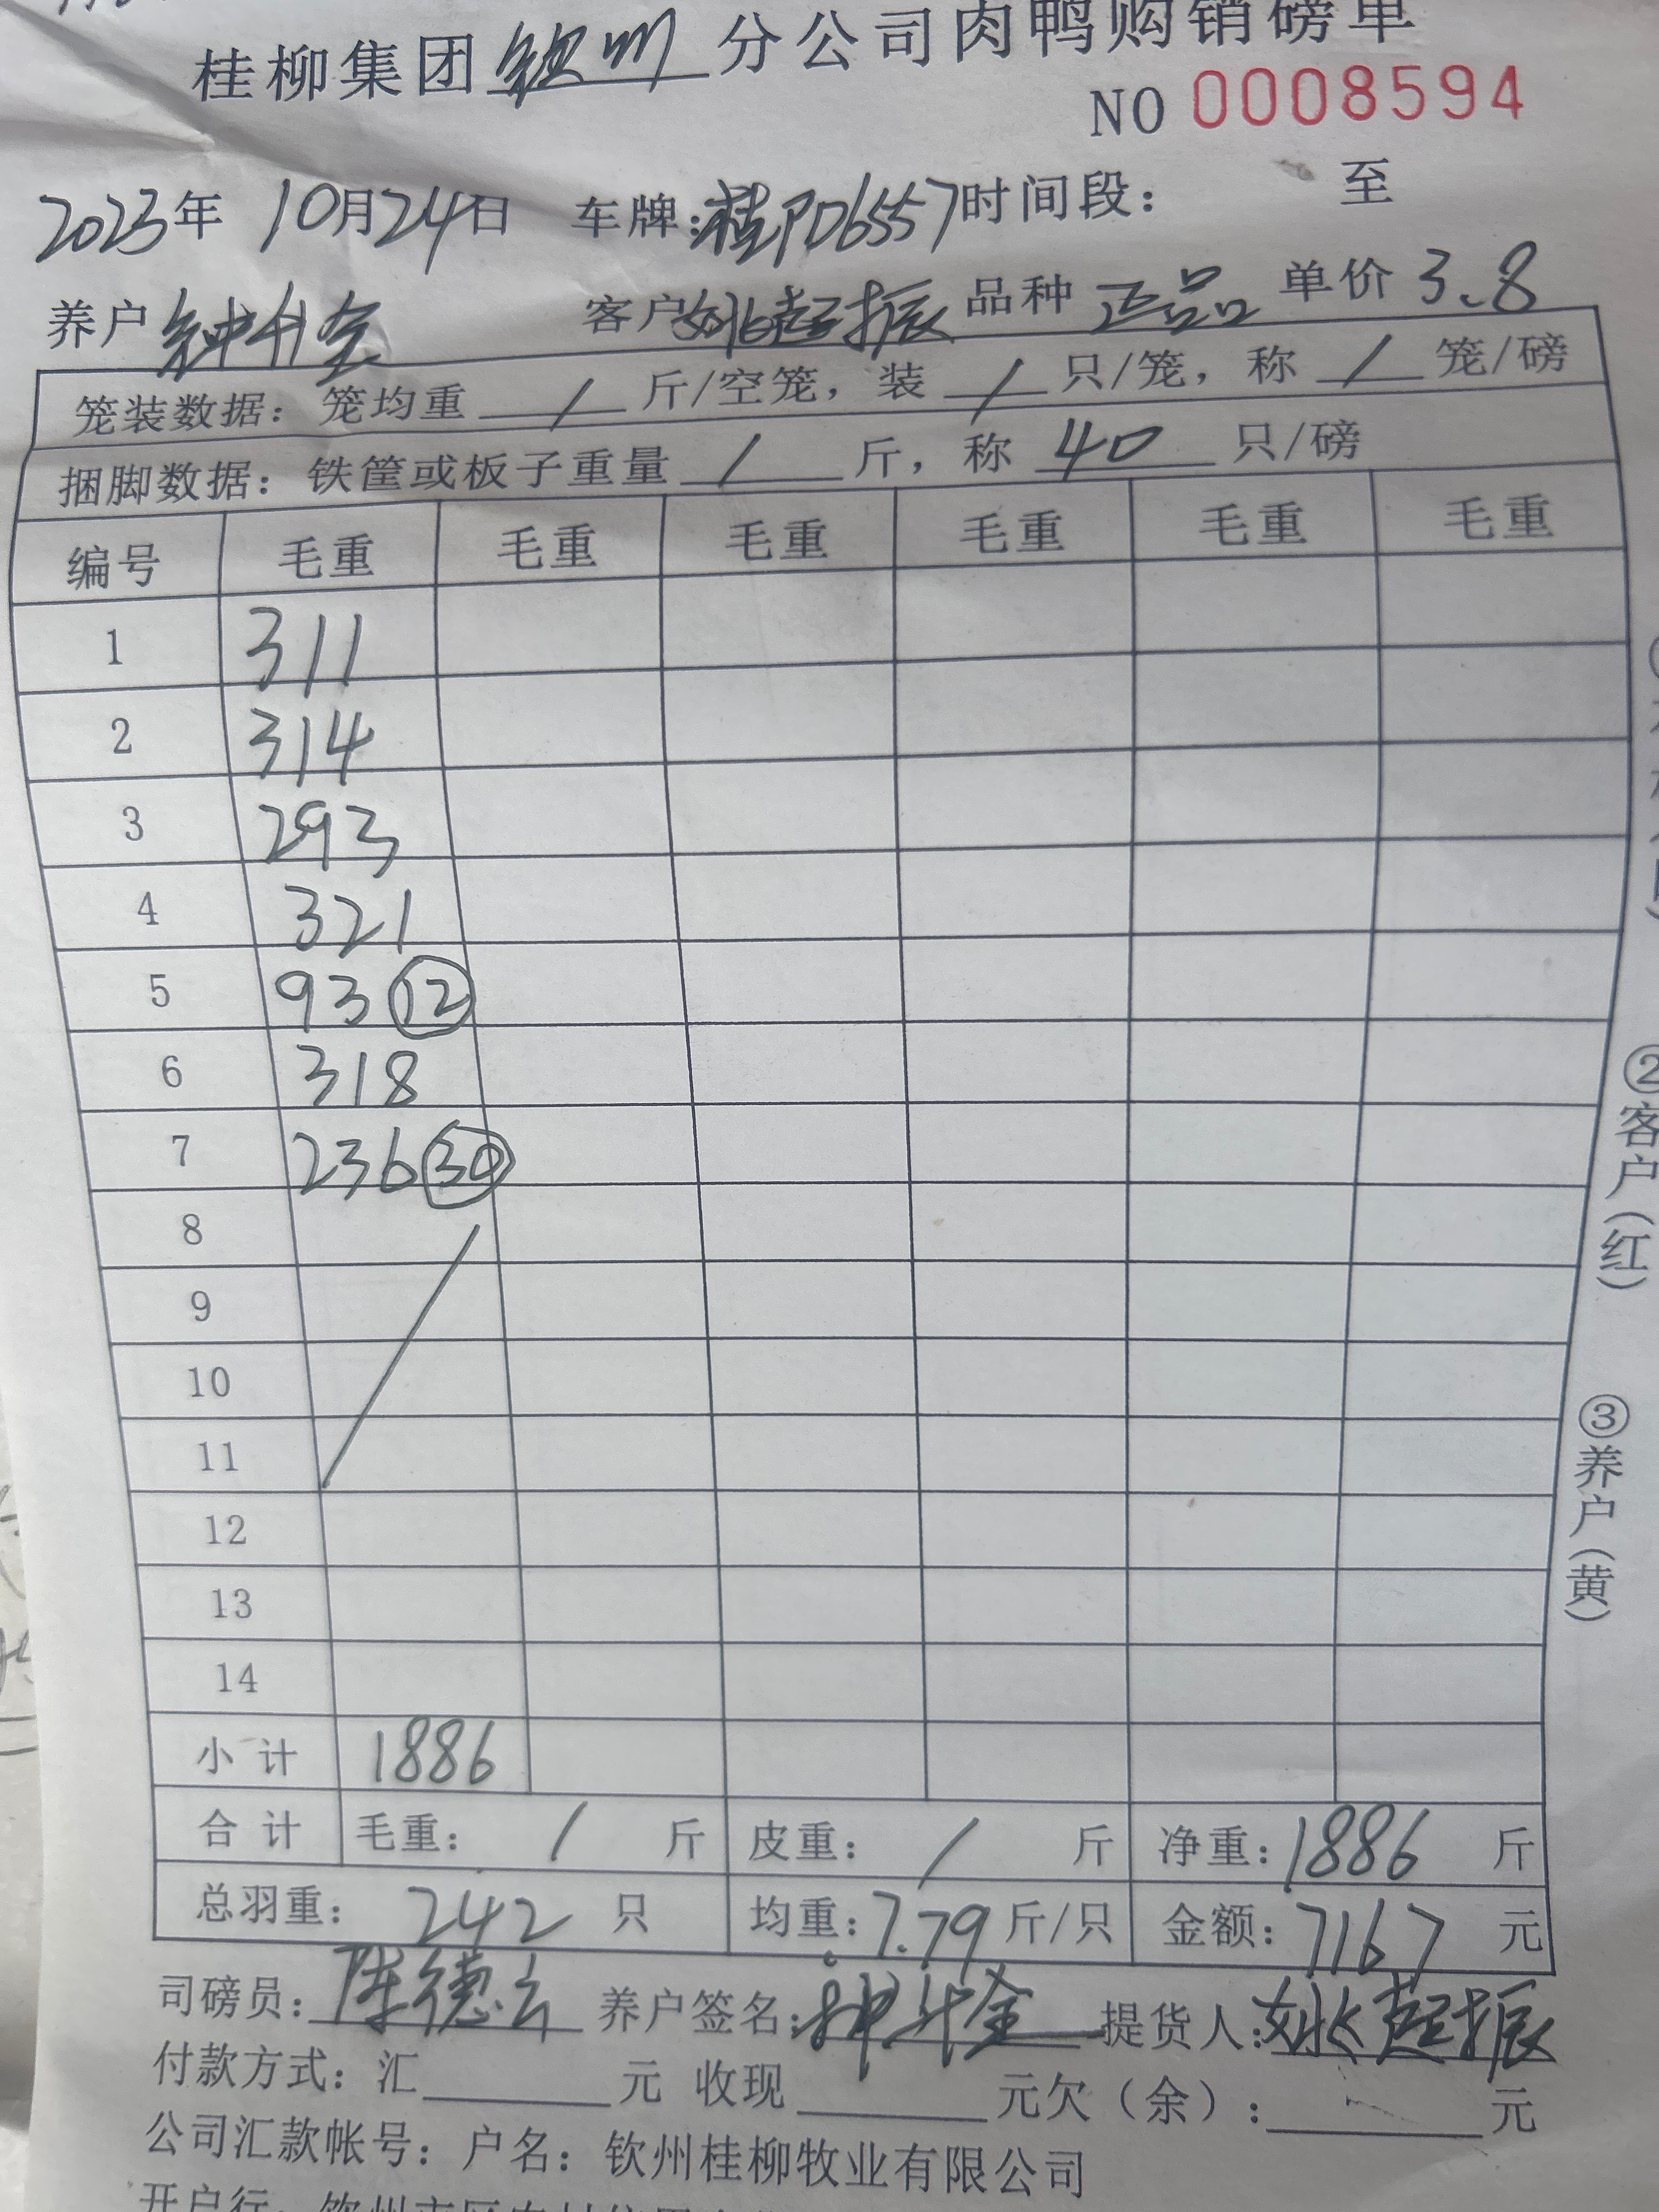 桂柳集团钦州分公司肉鸭购销磅单
NO 0008594
2023年 10月24日 车牌:桂PD6557时间段: 至
养户钟升金 客户姚超振 品种 正品 单价 3.8
笼装数据: 笼均重 / 斤/空笼, 装 / 只/笼, 称 / 笼/磅
捆脚数据: 铁筐或板子重量 / 斤, 称 40 只/磅
编号 毛重 毛重 毛重 毛重 毛重 毛重
1 311
2 314
3 293
4 321
5 93 ⑫
6 318
7 236 ㉚
8
9
10
11
12
13
14
小计 1886
合计 毛重: / 斤 皮重: / 斤 净重: 1886 斤
总羽重: 242 只 均重: 7.79 斤/只 金额: 7167 元
司磅员: 陈德云 养户签名: 钟升金 提货人: 姚超振
付款方式: 汇 元 收现 元欠(余): 元
公司汇款帐号: 户名: 钦州桂柳牧业有限公司
开户行:
②客户(红)
③养户(黄)